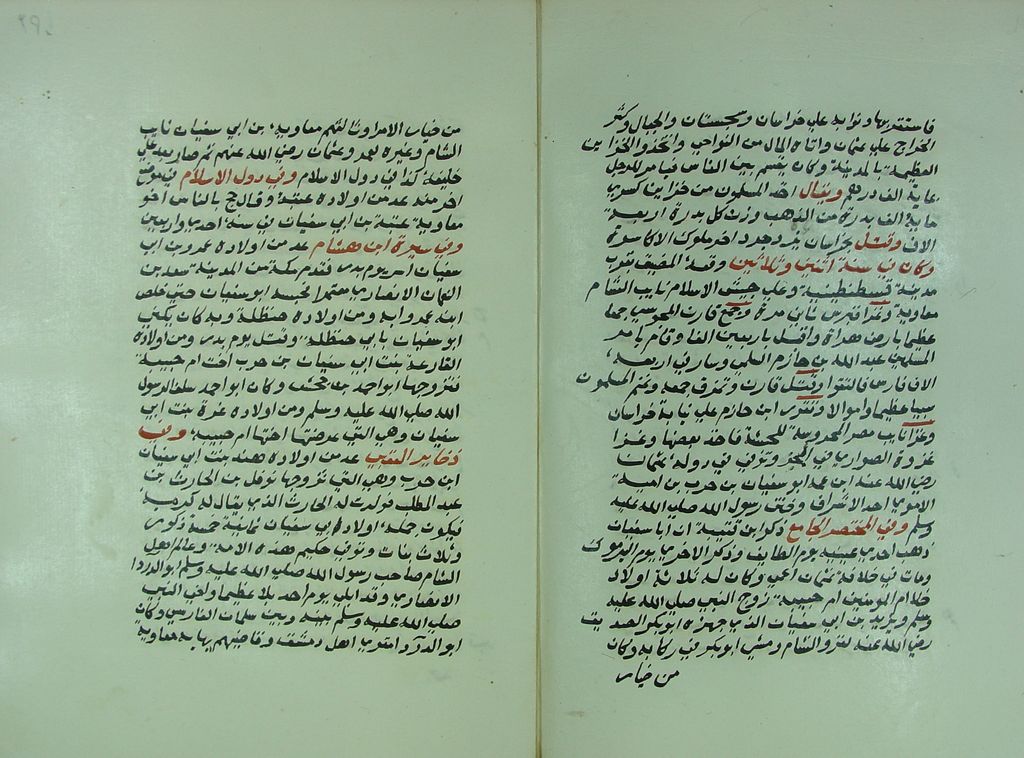 فاستقر بها ونوابه علي خراسان وسجستان والجبال وكثر
الخراج علي عثمان واتاه المال من النواحي واتخذ الخزاين
العظيمة بالمدينة وكان يقسم بين الناس فيامر للرجل
بماية الف درهم ويقال اخذ المسلمون من خزاين كسري
ماية الف بدرة من الذهب وزن كل بدرة اربعة
الاف وقتل بخراسان يزدجرد اخر ملوك الاكاسرة
وكان في سنة اثنين وثلاثين وقعة المضيق بقرب
مدينة قسطنطينية وعلي جيش الاسلام نايب الشام
معاوية وغزا قبرس ثاني مرة وجمع قارن المجوسي جمعا
عظيما بارض هراة واقبل باربعين الفا وقام بامر
المسلمين عبد الله بن حازم السلمي وسار في اربعة
الاف فارس فالتقوا وقتل قارن وتمزق جمعه وغنم المسلمون
سبيا عظيما واموالا وتقرر ابن حازم علي نيابة خراسان
وغزا نايب مصر الحبشة فاخذ بعضها وغزا
غزوة الصواري في البحر وتوفي في دولة عثمان
رضي الله عنه ابن عمه ابو سفيان بن حرب بن امية
الاموي احد الاشراف وختن رسول الله صلي الله عليه
وسلم وفي المختصر الجامع ذكر ابن قتيبة ان ابا سفيان
ذهب احدي عينيه يوم الطايف وذكر الاخري يوم اليرموك
ومات في خلافة عثمان اعمي وكان له ثلاثة اولاد
ام المومنين ام حبيبة زوج النبي صلي الله عليه
وسلم ويزيد بن ابي سفيان الذي جهزه ابو بكر الصديق
رضي الله عنه لغزو الشام ومشي ابو بكر في ركابه وكان
من خيار
من خيار الامرا وثالثهم معاوية بن ابي سفيان نايب
الشام وغيره لعمر وعثمان رضي الله عنهم ثم صار بعد علي
خليفة كذا في دول الاسلام وفي دول الاسلام في موضع
اخر منه عد من اولاده عتبة وقال حج بالناس اخو
معاوية عتبة بن ابي سفيان في سنة احدي واربعين
وفي سيرة ابن هشام عد من اولاده عمرو بن ابي
سفيان اسر يوم بدر فقدم مكة من المدينة سعد بن
النعمان الانصاري معتمرا فحبسه ابو سفيان حتي خلص
ابنه عمرو به ومن اولاده حنظلة وبه كان يكني
ابو سفيان بابي حنظلة وقتل يوم بدر ومن اولاده
الفارعة بنت ابي سفيان بن حرب اخت ام حبيبة
فتزوجها ابو احمد بن جحش وكان ابو احمد سلف الرسول
الله صلي الله عليه وسلم ومن اولاده عزة بنت ابي
سفيان وهي التي عرضتها اختها ام حبيبة وفي
ذخاير العقبي عد من اولاده هند بنت ابي سفيان
ابن حرب وهي التي تزوجها نوفل بن الحارث بن
عبد المطلب فولدت له الحارث الذي يقال له
فيكون جملة اولاد ابي سفيان ثمانية خمسة ذكور
وثلاث بنات وتوفي حكيم هذه الامة وعالم اهل
الشام صاحب رسول الله صلي الله عليه وسلم ابو الدردا
الانصاري وقد ابلي يوم احد بلا عظيما واخي النبي
صلي الله عليه وسلم بينه وبين سلمان الفارسي وكان
ابو الدردا مقري اهل دمشق وقاضيهم نيابة معاوية